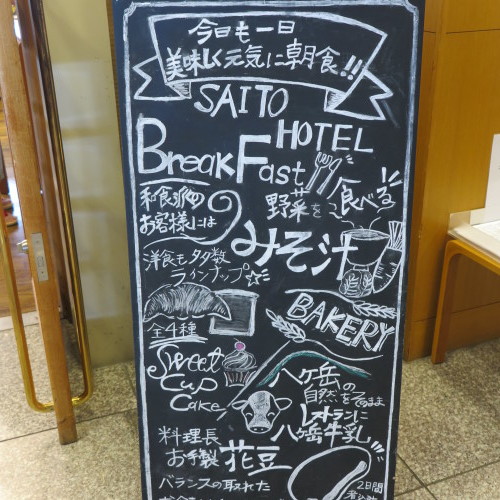 今日も一日
美味しく元気に朝食!!
SAITO
HOTEL
BreakFast
和食派の
お客様には
野菜を
食べる
みそ汁
洋食も多数
ラインナップ☆
BAKERY
全4種
Sweet
Cup
Cake
八ヶ岳の
自然をそのまま
レストランに
八ヶ岳牛乳
料理長
お手製
花豆
バランスの取れた
2日間